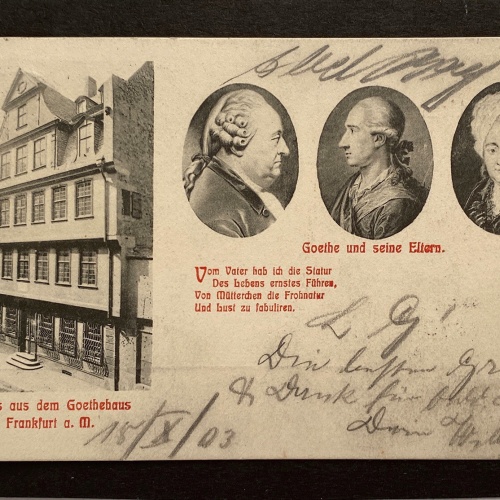 Goethe und seine Eltern.
Vom Vater hab ich die Statur
Des Lebens ernstes Führen,
Von Mütterchen die Frohnatur
Und Lust zu fabuliren.
s aus dem Goethehaus
Frankfurt a. M.
18/X/03
L. G!
Die besten Gr
& Dank für
Dein